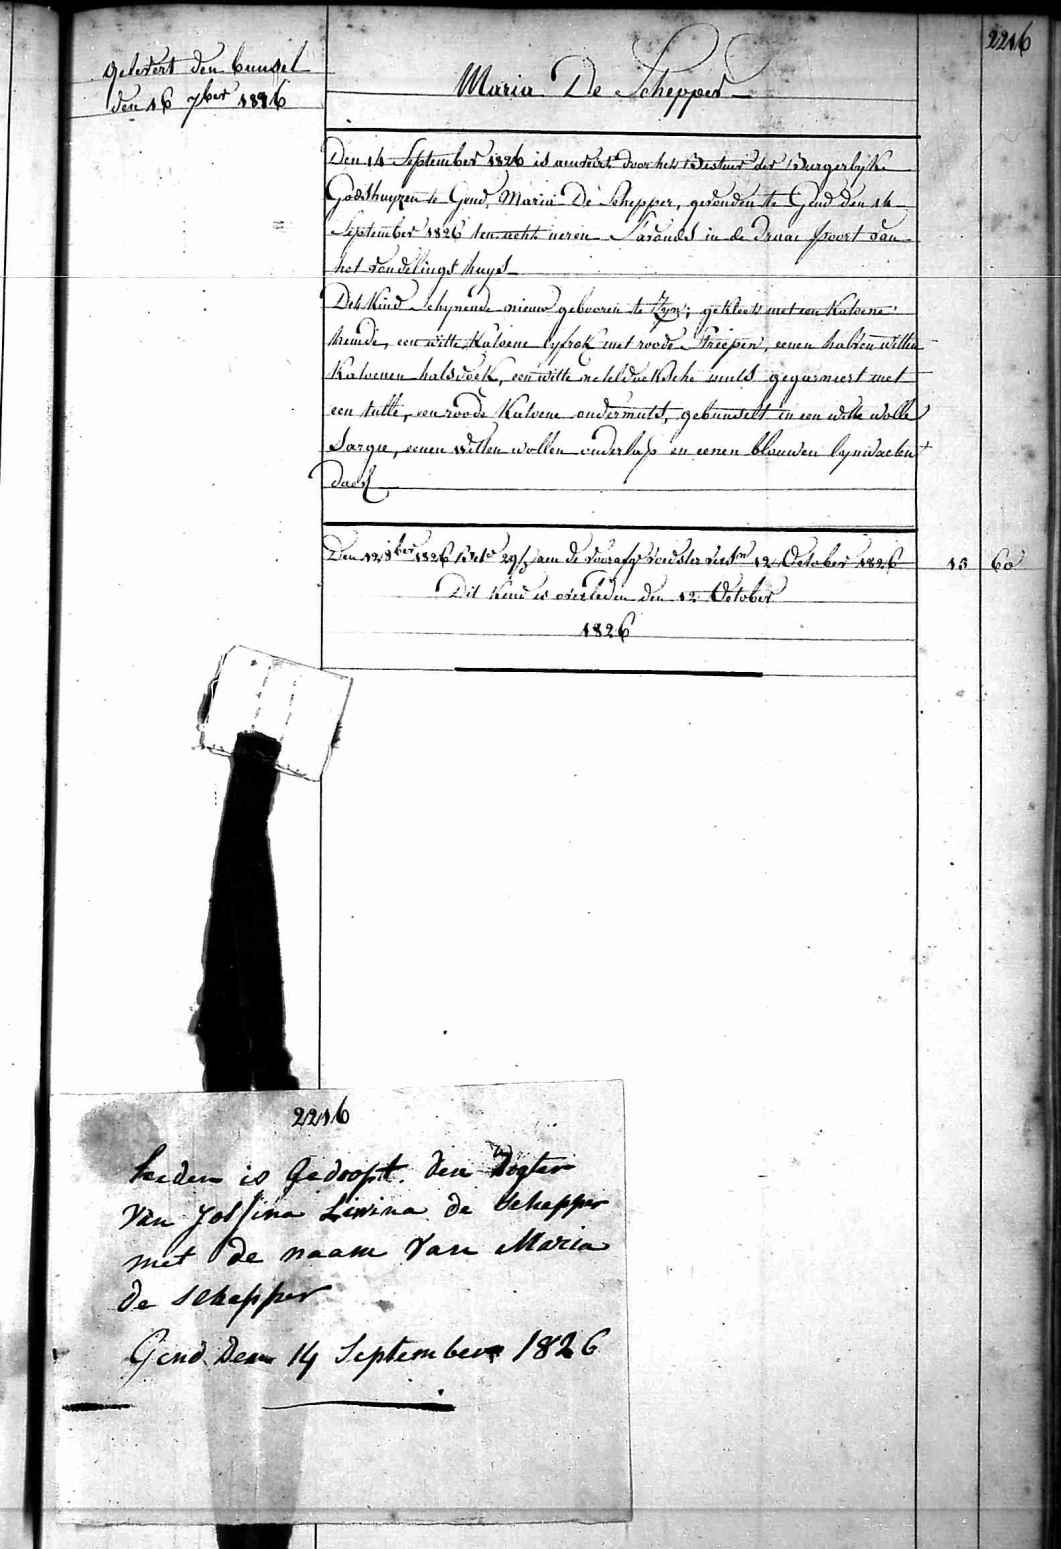 2216
gelevert den bunsel
den 16 7ber 1826
Maria De Schepper
Den 14 September 1826 is aenveirt door het Bestuer der Burgerlyke
Godshuyzen te Gend, Maria De Schepper, gevonden te Gend den 14
September 1826 ten acht ueren S'avonds in de draai poort van
het vondelings huys
Det Kind schynende nieuw gebooren te Zyn; gekleet met een Katoene
hemde, een witte Katoene lyfrok met roode streepen, eenen halven witten
Katoenen halsdoek, een witte neteldoeksche muts gegarniert met
een tulle, een roode Katoene ondermuts, gebunselt in een witte wolle
Sargie, eenen witten wollen onderlap en eenen blauwen lynwaeten
doek
Den 12 8ber 1826 29 aen de voorafg voedster 12 October 1826 13 60
Dit Kind is overleden den 12 October
1826
2216
heden is Gedoopt den Dogter
van Joffina Livina de Schepper
met de naam van Maria
de Schepper
Gend Den 14 September 1826